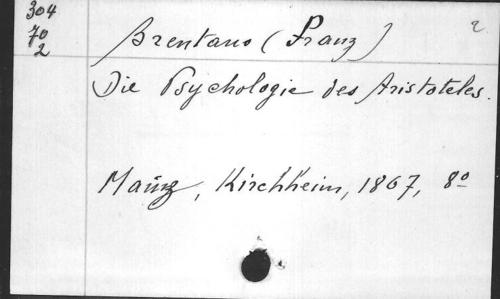 304
70
2
Brentano (Franz)
2
Die Psychologie des Aristoteles.
Mainz, Kirchheim, 1867, 8º